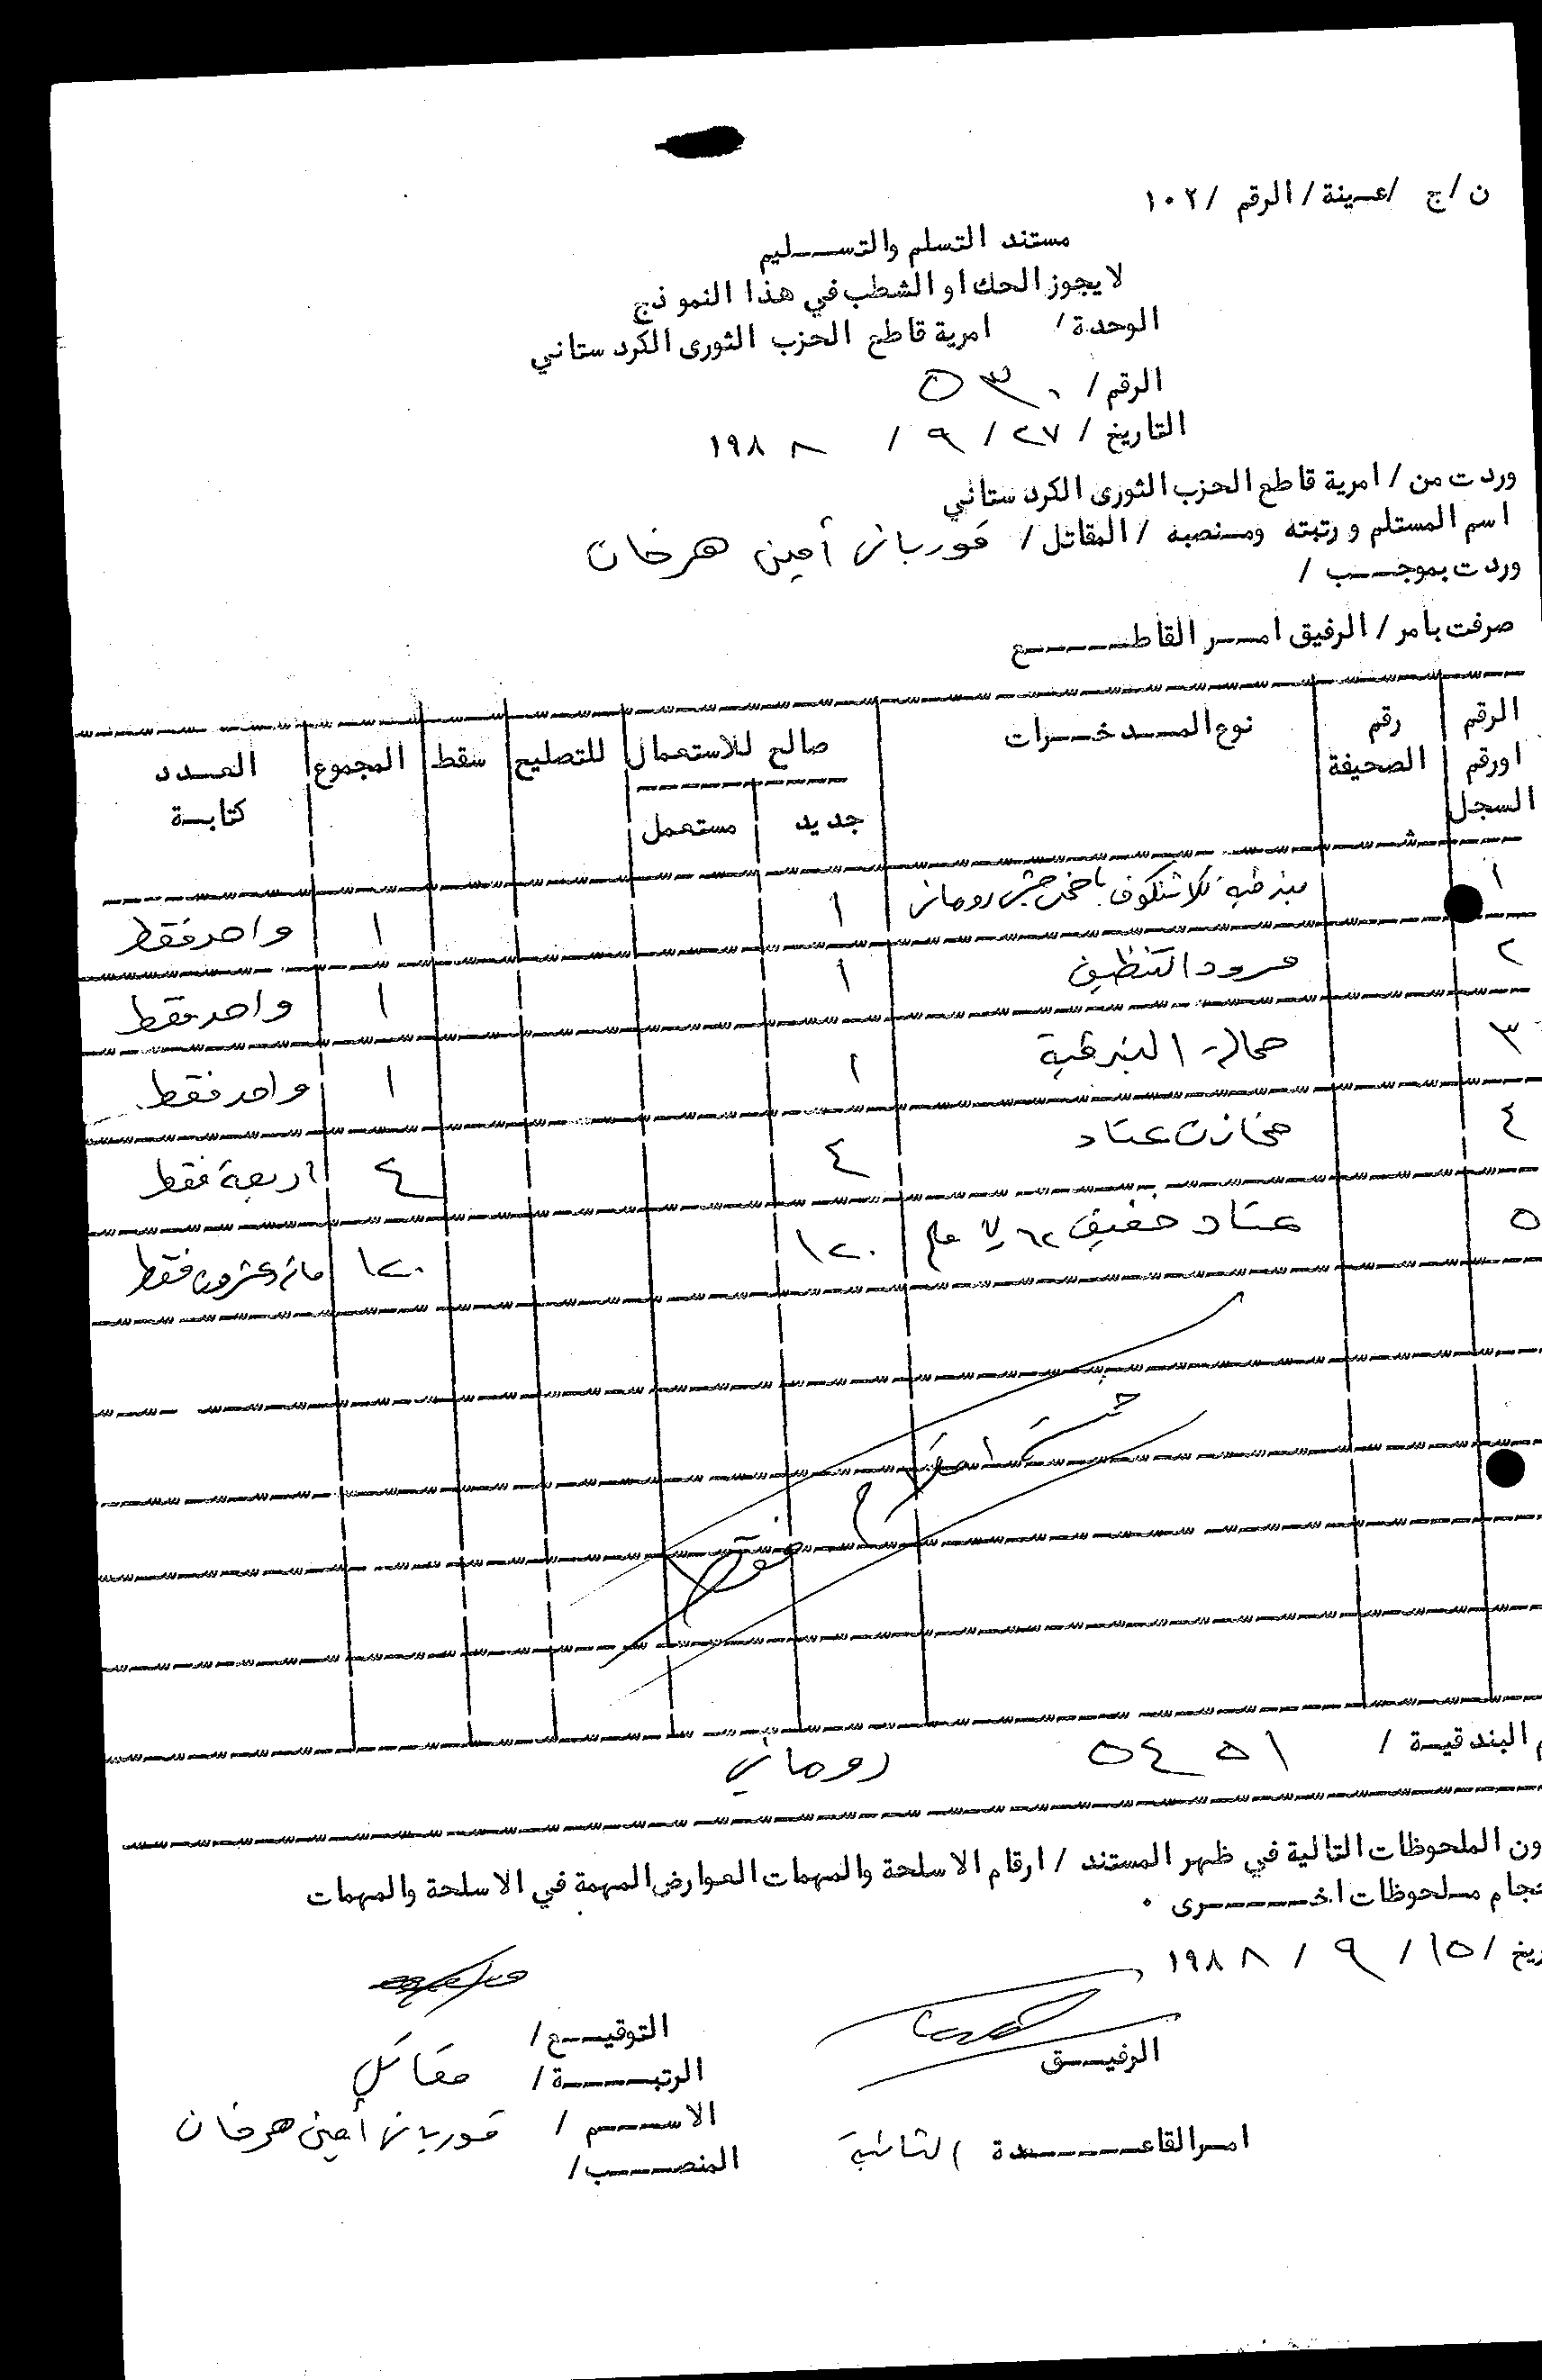 ن / ج / عينة / الرقم / ١٠٢
مستند التسلم والتسليم
لا يجوز الحك او الشطب في هذا النموذج
الوحدة / امرية قاطع الحزب الثورى الكردستاني
الرقم / ٥٣٠
التاريخ / ٢٧ / ٩ / ١٩٨٨
وردت من / امرية قاطع الحزب الثورى الكردستاني
اسم المستلم ورتبته ومنصبه / المقاتل / قوربانى أمين هرخان
وردت بموجب /
صرفت بامر / الرفيق امر القاطع
الرقم اورقم السجل | رقم الصحيفة | نوع المدخرات | صالح للاستعمال | للتصليح | سقط | المجموع | العدد كتابة
جديد | مستعمل
١ بندقية كلاشنكوف روماني ١ ١ واحد فقط
٢ مرود التنظيف ١ ١ واحد فقط
٣ حمالة البندقية ١ ١ واحد فقط
٤ مخازن عتاد ٤ ٤ اربعة فقط
٥ عتاد خفيف ٧,٦٢ ملم ١٢٠ ١٢٠ مائة وعشرون فقط
فقط
البندقية / ٥٤٥١ روماني
ون الملحوظات التالية في ظهر المستند / ارقام الاسلحة والمهمات العوارض المهمة في الاسلحة والمهمات
حجام ملحوظات اخرى .
ريخ / ١٥ / ٩ / ١٩٨٨
التوقيع /
الرفيق
الرتبة / مقاتل
الاسم / قوربانى أمين هرخان
امر القاعدة الثانية
المنصب /